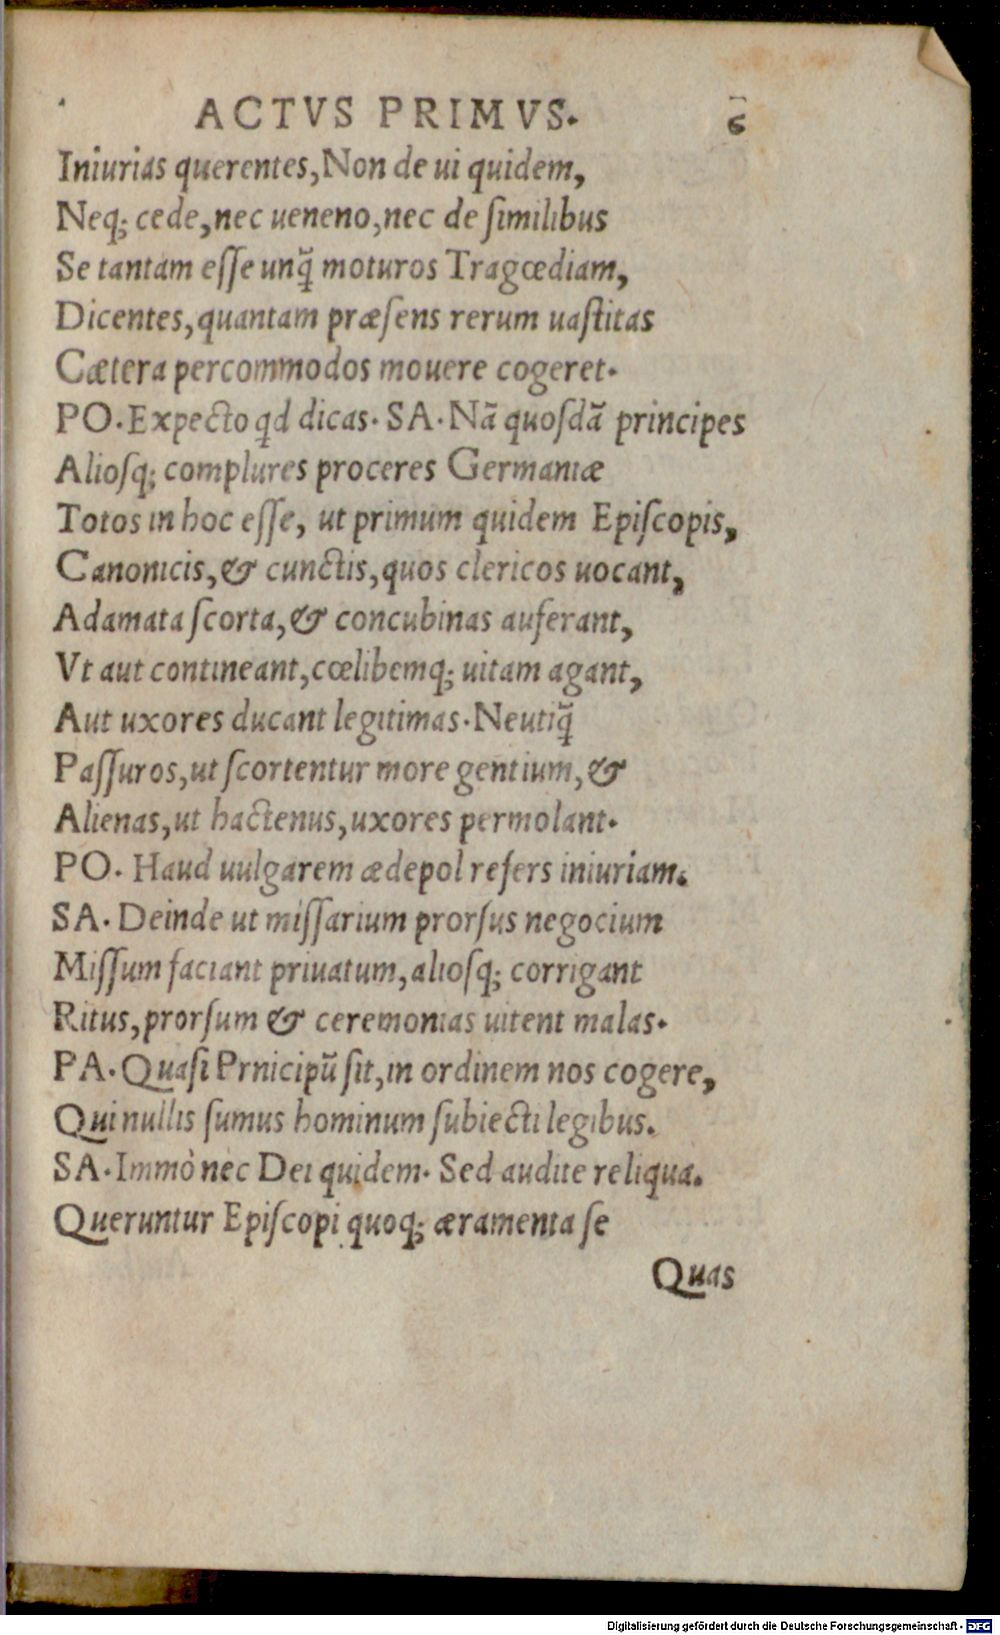 ACTVS PRIMVS. 6
Iniurias querentes, Non de ui quidem,
Neq; cede, nec ueneno, nec de ſimilibus
Se tantam eſſe unq̃ moturos Tragœdiam,
Dicentes, quantam præſens rerum uaſtitas
Cætera percommodos mouere cogeret.
PO. Expecto qd dicas. SA. Nã quoſdã principes
Alioſq; complures proceres Germaniæ
Totos in hoc eſſe, ut primum quidem Epiſcopis,
Canonicis, & cunctis, quos clericos uocant,
Adamata ſcorta, & concubinas auferant,
Vt aut contineant, cœlibemq; uitam agant,
Aut uxores ducant legitimas. Neutiq̃
Paſſuros, ut ſcortentur more gentium, &
Alienas, ut hactenus, uxores permolant.
PO. Haud uulgarem ædepol refers iniuriam.
SA. Deinde ut miſſarium prorſus negocium
Miſſum faciant priuatum, alioſq; corrigant
Ritus, prorſum & ceremonias uitent malas.
PA. Quaſi Prnicipũ ſit, in ordinem nos cogere,
Qui nullis ſumus hominum ſubiecti legibus.
SA. Immò nec Dei quidem. Sed audite reliqua.
Queruntur Epiſcopi quoq; æramenta ſe
Quas
Digitalisierung gefördert durch die Deutsche Forschungsgemeinschaft - DFG